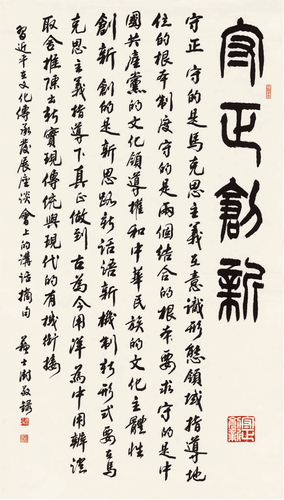 守正創新
守正 守的是馬克思主義在意識形態領域指導地
位的根本制度守的是兩個結合的根本要求守的是中
國共產黨的文化領導權和中華民族的文化主體性
創新 創的是新思路新話語新機制新形式要在馬
克思主義指導下真正做到古為今用洋為中用辯證
取舍推陳出新實現傳統與現代的有機銜接
習近平在文化傳承發展座談會上的講話摘句
蘇士澍敬録
守正創新